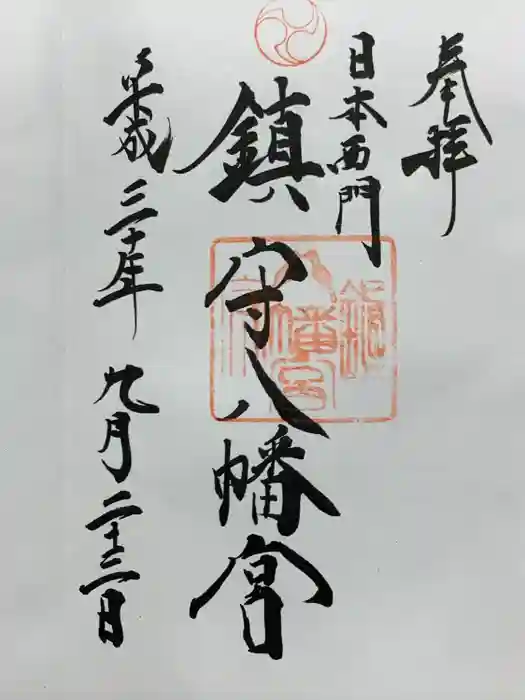 奉拝
日本西門
鎮守八幡宮
平成三十年九月二十三日